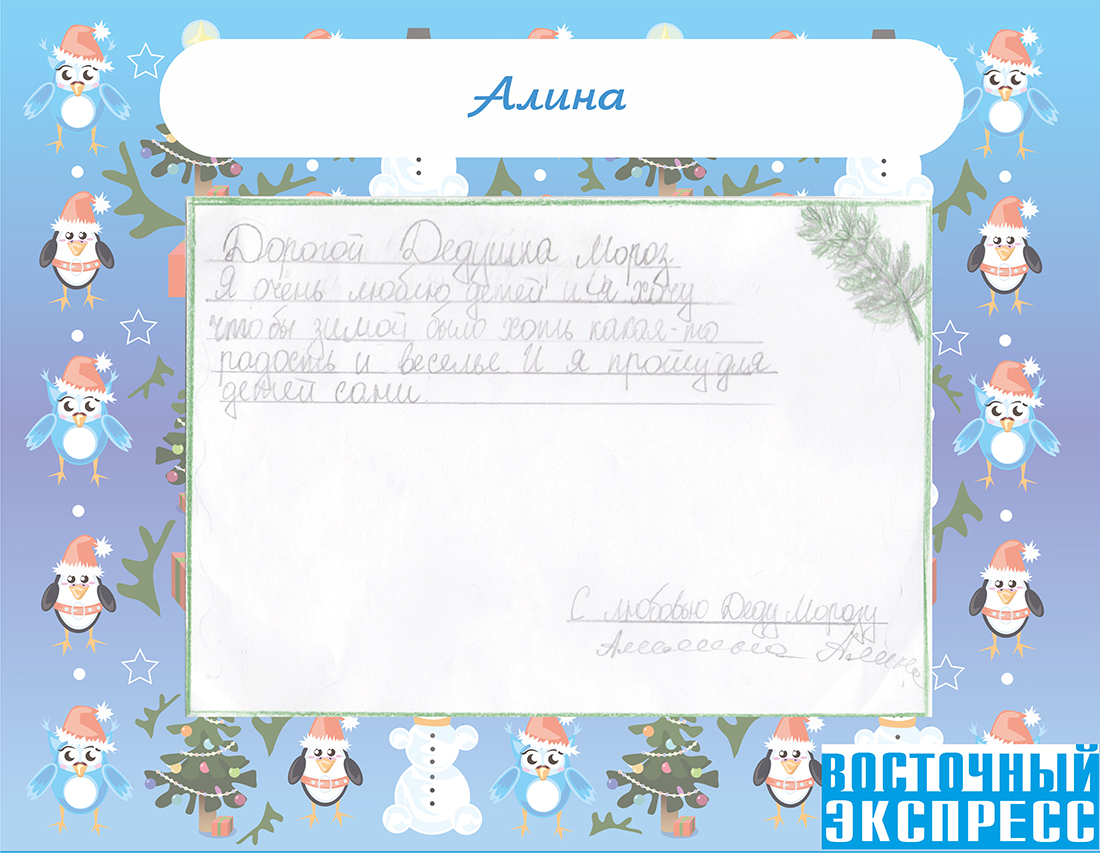 Алина
Дорогой Дедушка Мороз.
Я очень люблю детей и я хочу
что бы зимой было хоть какая-то
радость и веселье. И я пройшу для
детей сани.
С любовью Деду Морозу
Алина
ВОСТОЧНЫЙ
ЭКСПРЕСС